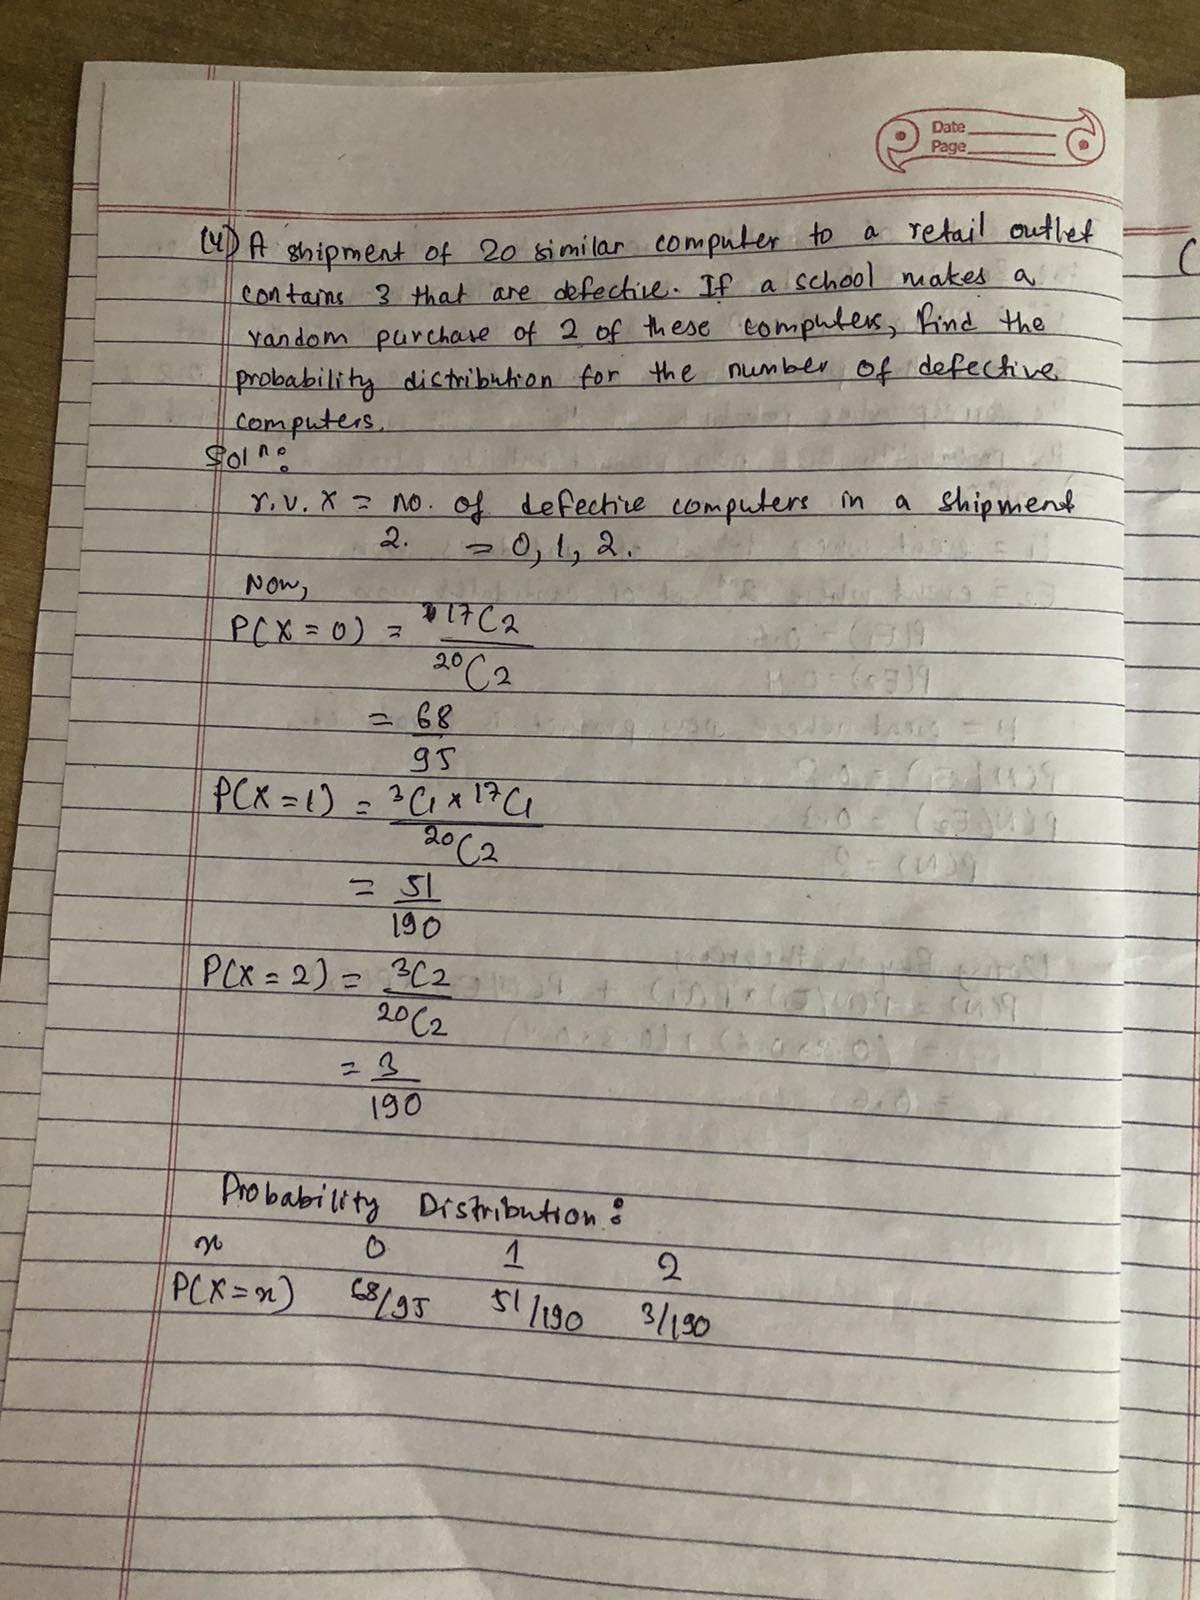 Date
Page
(4) A shipment of 20 similar computer to a retail outlet
contains 3 that are defective. If a school makes a
random purchase of 2 of these computers, find the
probability distribution for the number of defective
computers.
Solⁿ:
r.v. x = no. of defective computers in a shipment
2. = 0, 1, 2.
Now,
P(X = 0) = ¹⁷C2
²⁰C2
= 68
95
P(X = 1) = ³C1 × ¹⁷C1
²⁰C2
= 51
190
P(X = 2) = ³C2
²⁰C2
= 3
190
Probability Distribution:
x 0 1 2
P(X = x) 68/95 51/190 3/190